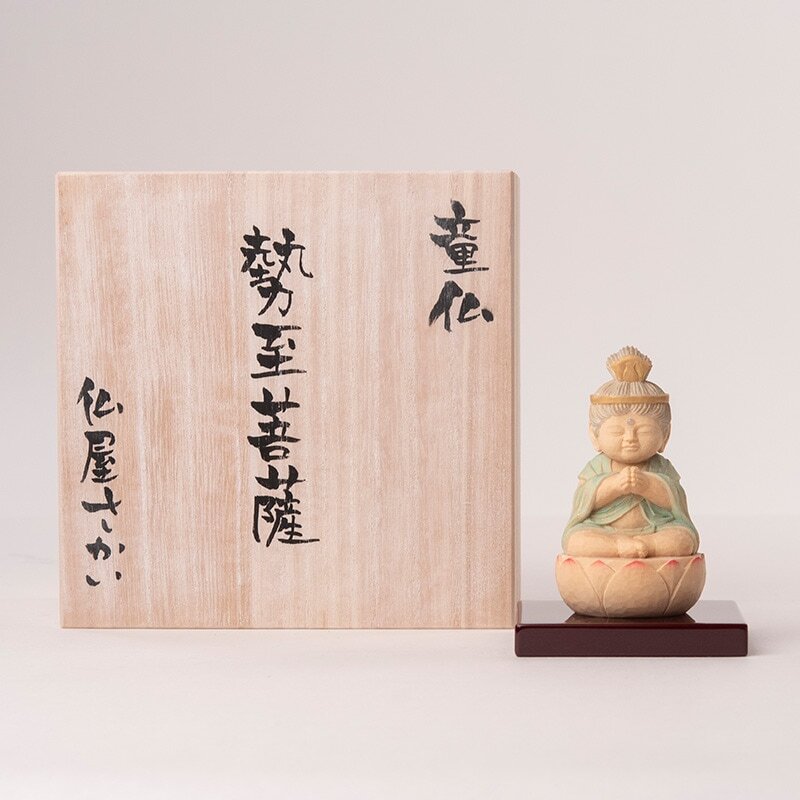 童仏
勢至菩薩
仏屋さかい